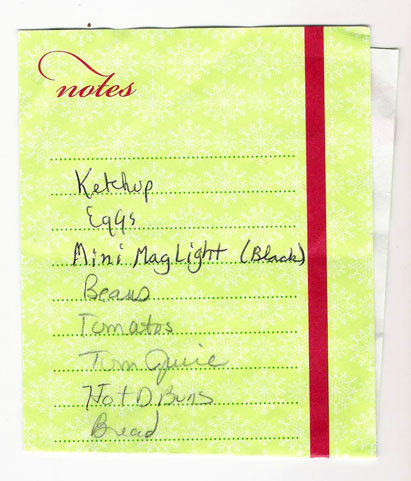 notes
Ketchup
Eggs
Mini MagLight (Black)
Beans
Tomatos
Tom Juice
Hot D Buns
Bread